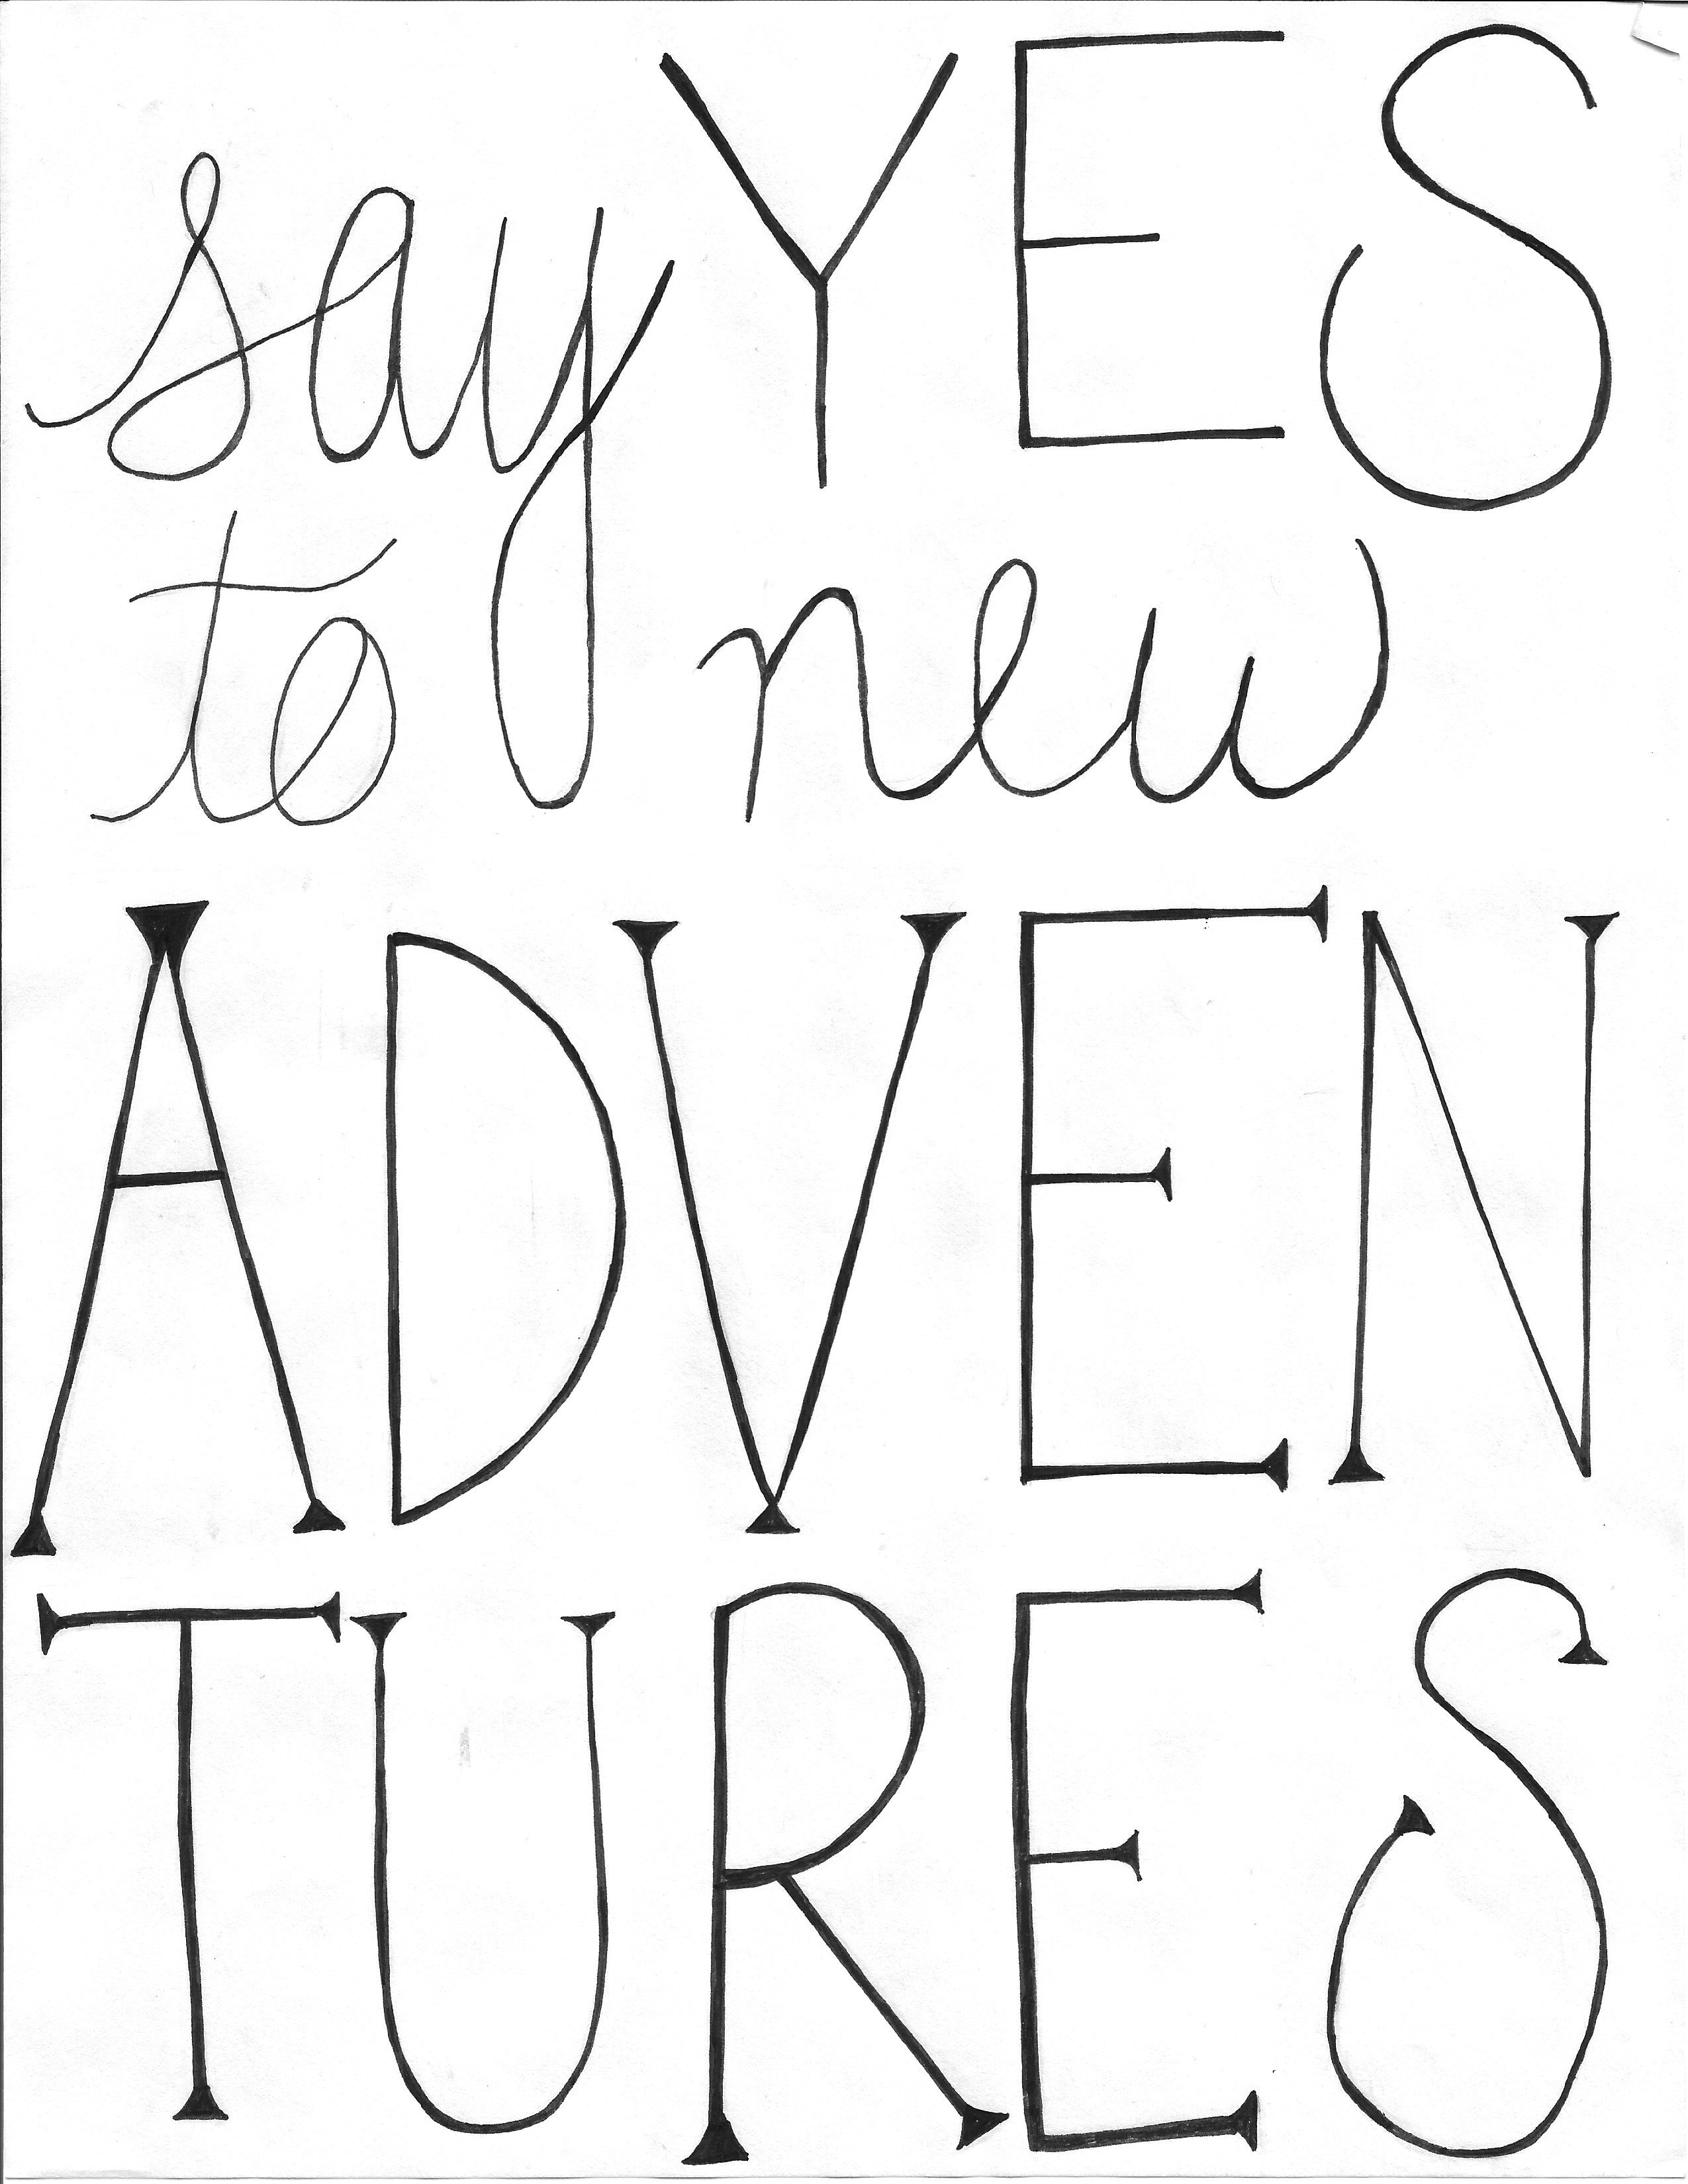 say YES
to new
ADVEN
TURES